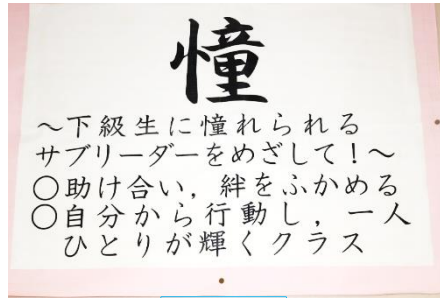 憧
～下級生に憧れられる
サブリーダーをめざして！～
○助け合い，絆をふかめる
○自分から行動し，一人
ひとりが輝くクラス